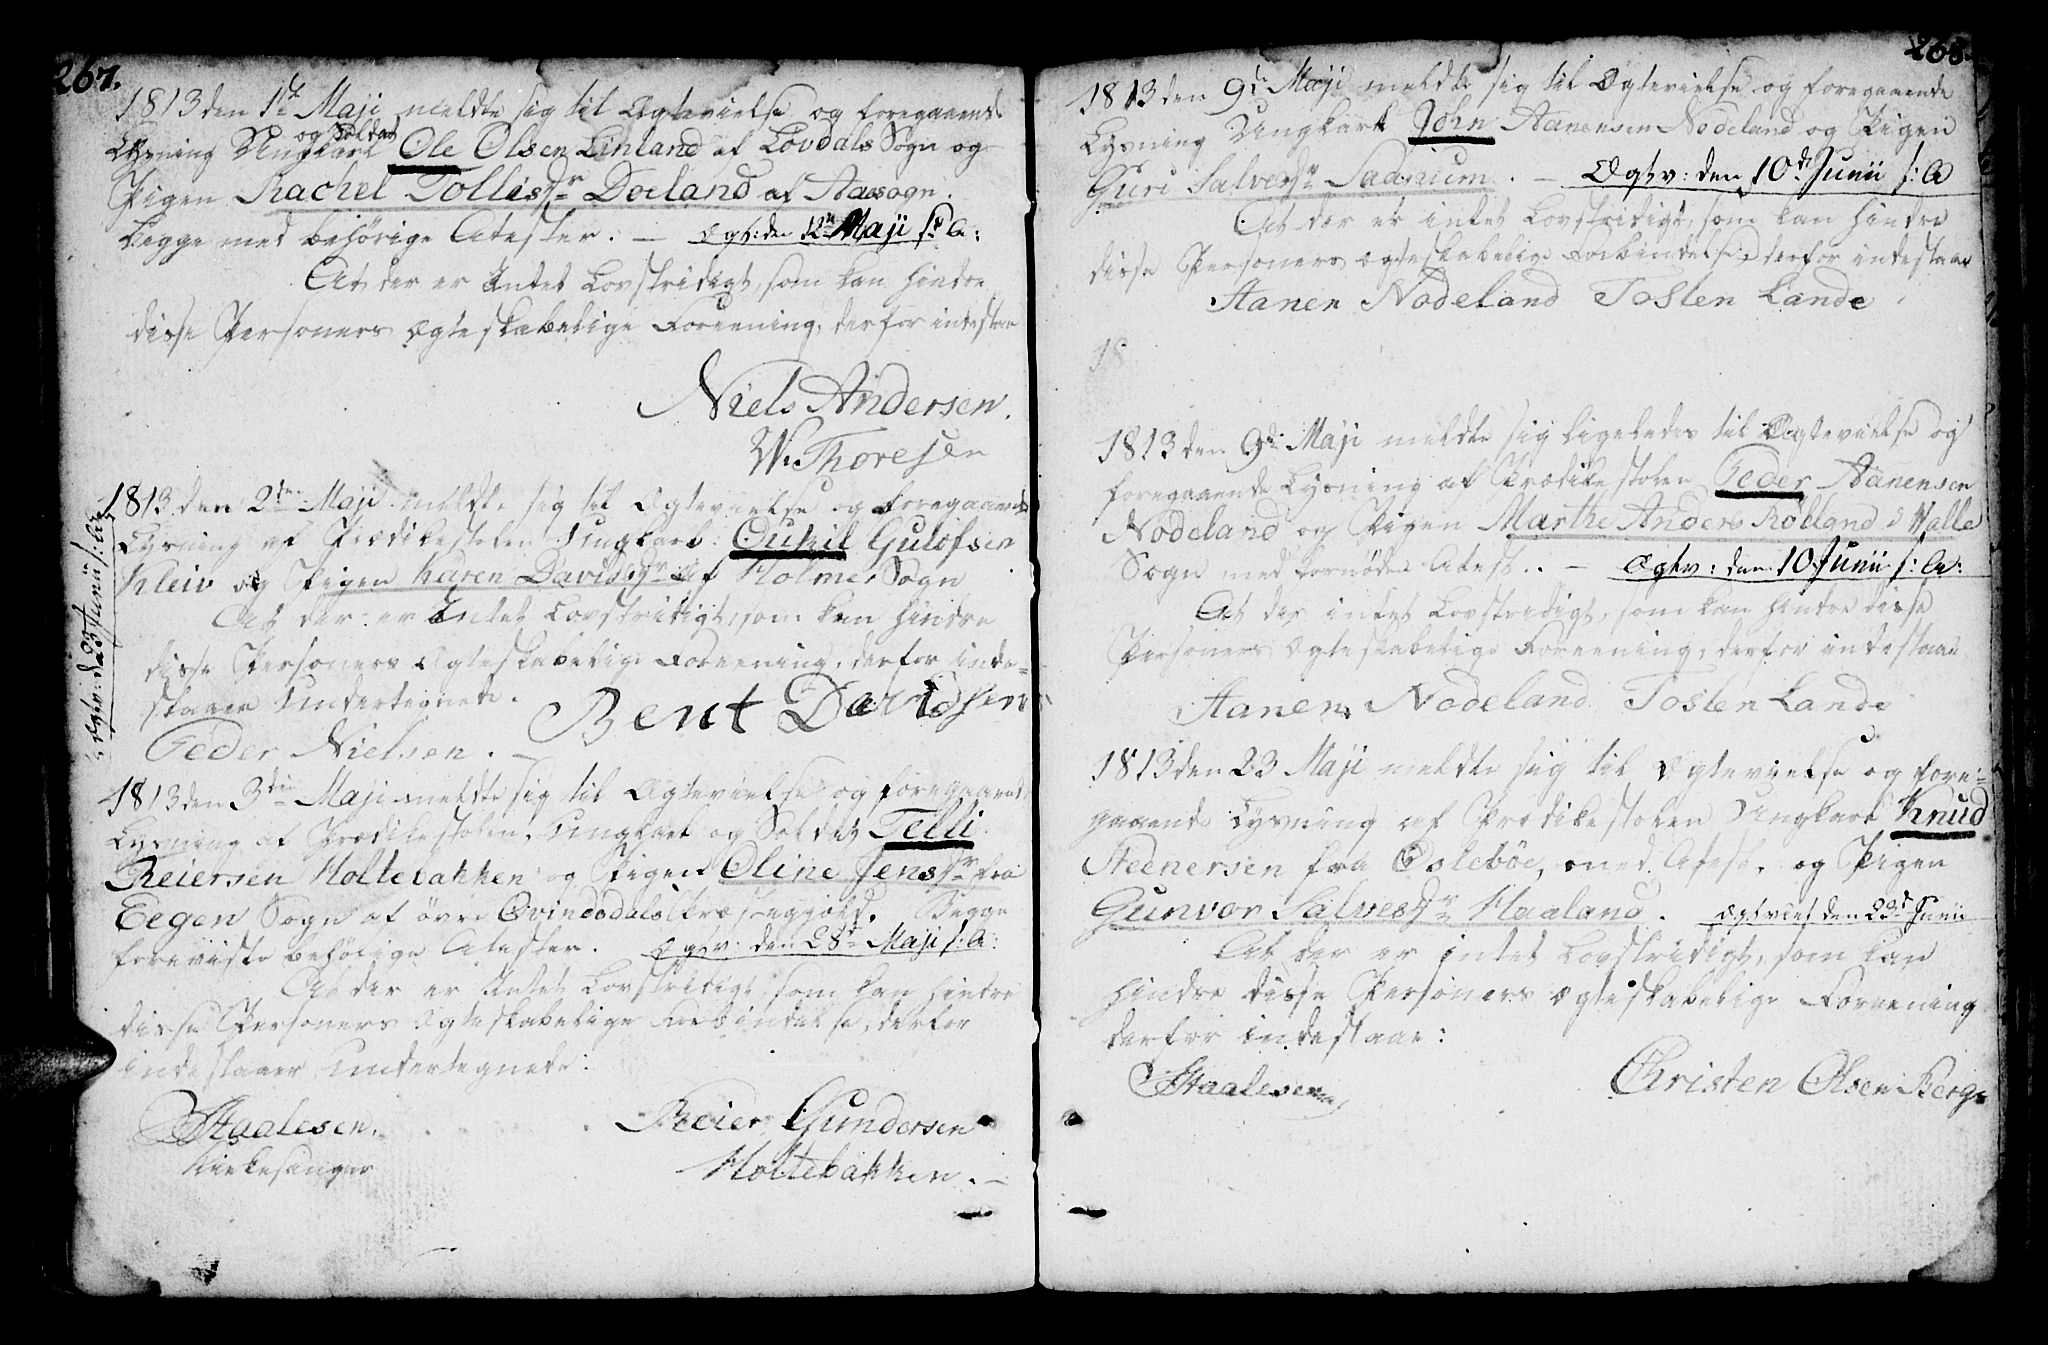 267.
1813 den 1te Maji meldte sig til Ægtevielse og foregaaende
Lysning Ungkarl og Soldat Ole Olsen Linland af Løvdals Sogn og
Pigen Rachel Tollisdr Døeland af Aaesogn.
begge med behørige Atester. — Ægt: den 12te Maji s: A:
At der er Intet Lovstridigt, som kan hindre
disse Personers Ægteskabelige Foreening, derfor indestaae
Niels Andersen.
W. Thoresen
1813 den 2den Maji meldte sig til Ægtevielse og foregaaende
Lysning af Prædikestolen Ungkarl: Oukil Gulofsen
Kleiv og Pigen Karen Davidsdr af Holme Sogn
At der er Intet Lovstridigt, som kan hindre
disse Personers Ægteskabelige Foreening, derfor inde-
staaer Undertegnede.
Bent Davidsen
Peder Nielsen.
Ægtv: d: 23 Junii s: A:
1813 den 3die Maji meldte sig til Ægtevielse og foregaaende
Lysning af Prædikestolen, Ungkarl og Soldat Telli
Reiersen Holtebakken og Pigen Oline Jensdr fra
Eegen Sogn af øvre Qvindsdals Præstegjeld. Begge
foreviste behørige Atester. Ægtv: den 28de Maji s: A:
At der er Intet Lovstridigt, som kan hindre
disse Personers Ægteskabelige Forbindelse, derfor
indestaaer Undertegnede:
Staalesen.
Kirkesanger
Reier Gundersen
Holtebakken. —
268.
1813 den 9de Maji meldte sig til Ægtevielse og foregaaende
Lysning Ungkarl John Aanensen Nodeland og Pigen
Guri Salvesdr . — Ægtv: den 10de Junii s: A
At der er intet Lovstridigt, som kan hindre
disse Personers Ægteskabelige Forbindelse, derfor indestaae
Aanen Nodeland Tosten Lande
18
1813 den 9de Maji meldte sig ligeledes til Ægtevielse og
foregaaende Lysning af Prædikestolen Peder Aanensen
Nodeland og Pigen Marthe Anders Rölland i Valle
Sogn med fornødne Atest. . — Ægtv: den 10 Junii s: A:
At der intet Lovstridigt, som kan hindre disse
Personers Ægteskabelige Foreening, derfor indestaae
Aanen Nodeland Tosten Lande
1813 den 23 Maji meldte sig til Ægtevielse og fore-
gaaende Lysning af Prædikestolen Ungkarl Knud
Steenersen fra Oslebøe, med Atest. og Pigen
Gunvor Salvesdr Haaland. Ægtviet den 29de Junii
At der er intet Lovstridigt, som kan
hindre disse Personers Ægteskabelige Foreening
derfor indestaae:
Staalesen
Christen Olsen Berge